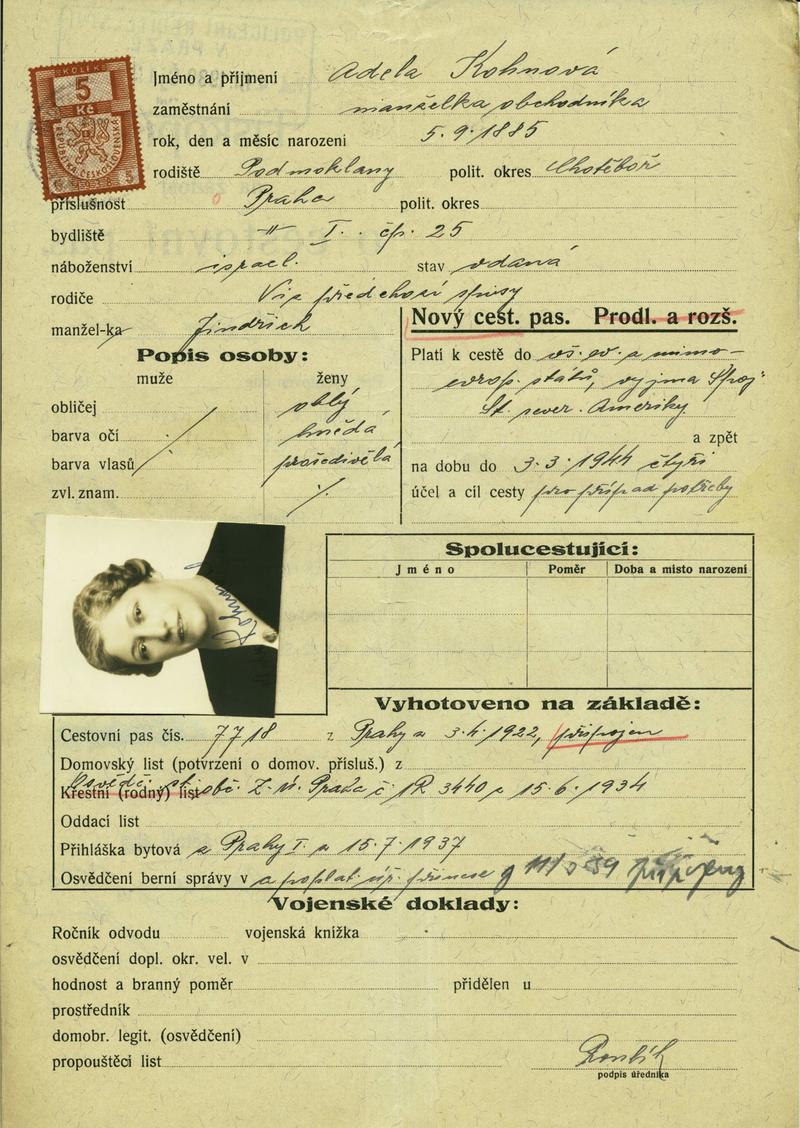 KOLEK
5
Kč
REPUBLIKA ČESKOSLOVENSKÁ
Jméno a příjmení Adela Kohnová
zaměstnání manželka obchodníka
rok, den a měsíc narození 5.9.1885
rodiště Podmoklany polit. okres Chotěboř
příslušnost Praha polit. okres
bydliště -"- I. čp. 25
náboženství israel. stav vdaná
rodiče Viz předchozí spisy
manžel-ka Jindřich
Nový cest. pas. Prodl. a rozš.
Popis osoby:
muže ženy
obličej oblý
barva očí hnědá
barva vlasů prošedivělá
zvl. znam. ·/.
Platí k cestě do vš. ev. a mimo-
evrop. států, vyjma Spoj.
St. sever. Ameriky
a zpět
na dobu do 3.3.1944 čtyři
účel a cíl cesty pro případ potřeby
Kohn
Spolucestující:
Jméno Poměr Doba a místo narození
Vyhotoveno na základě:
Cestovní pas čís. 7718 z Prahy z 3.4.1922, připojen
Domovský list (potvrzení o domov. přísluš.) z
Osvědč. st. obč. Z. ú. Praha č. IR 3440 z 15.6.1934
Křestní (rodný) list
Oddací list
Přihláška bytová z Prahy I. z 15.7.1937
Osvědčení berní správy v a poplat. úř. přinese připojeny
Vojenské doklady:
Ročník odvodu vojenská knížka
osvědčení dopl. okr. vel. v
hodnost a branný poměr přidělen u
prostředník
domobr. legit. (osvědčení)
propouštěcí list
podpis úředníka